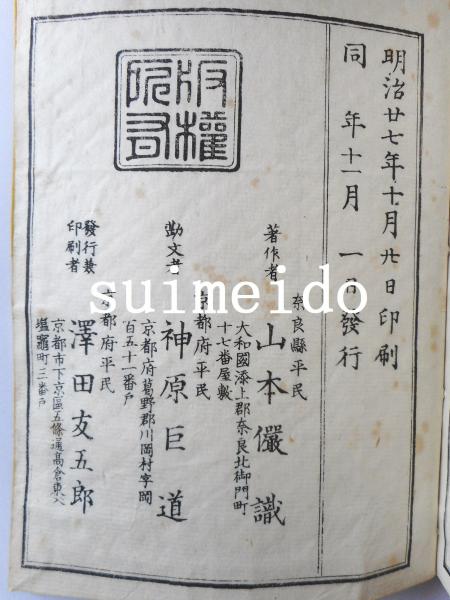 明治廿七年十月廿日印刷
同年十一月一日發行
版權所有
著作者
奈良縣平民
山本儼識
大和國添上郡奈良北御門町
十七番屋敷
京都府平民
神原巨道
京都府葛野郡川岡村字岡
百五十一番戸
發行兼
印刷者
京都府平民
澤田友五郎
京都市下京區五條通高倉東入
塩竈町三番戸
suimeido